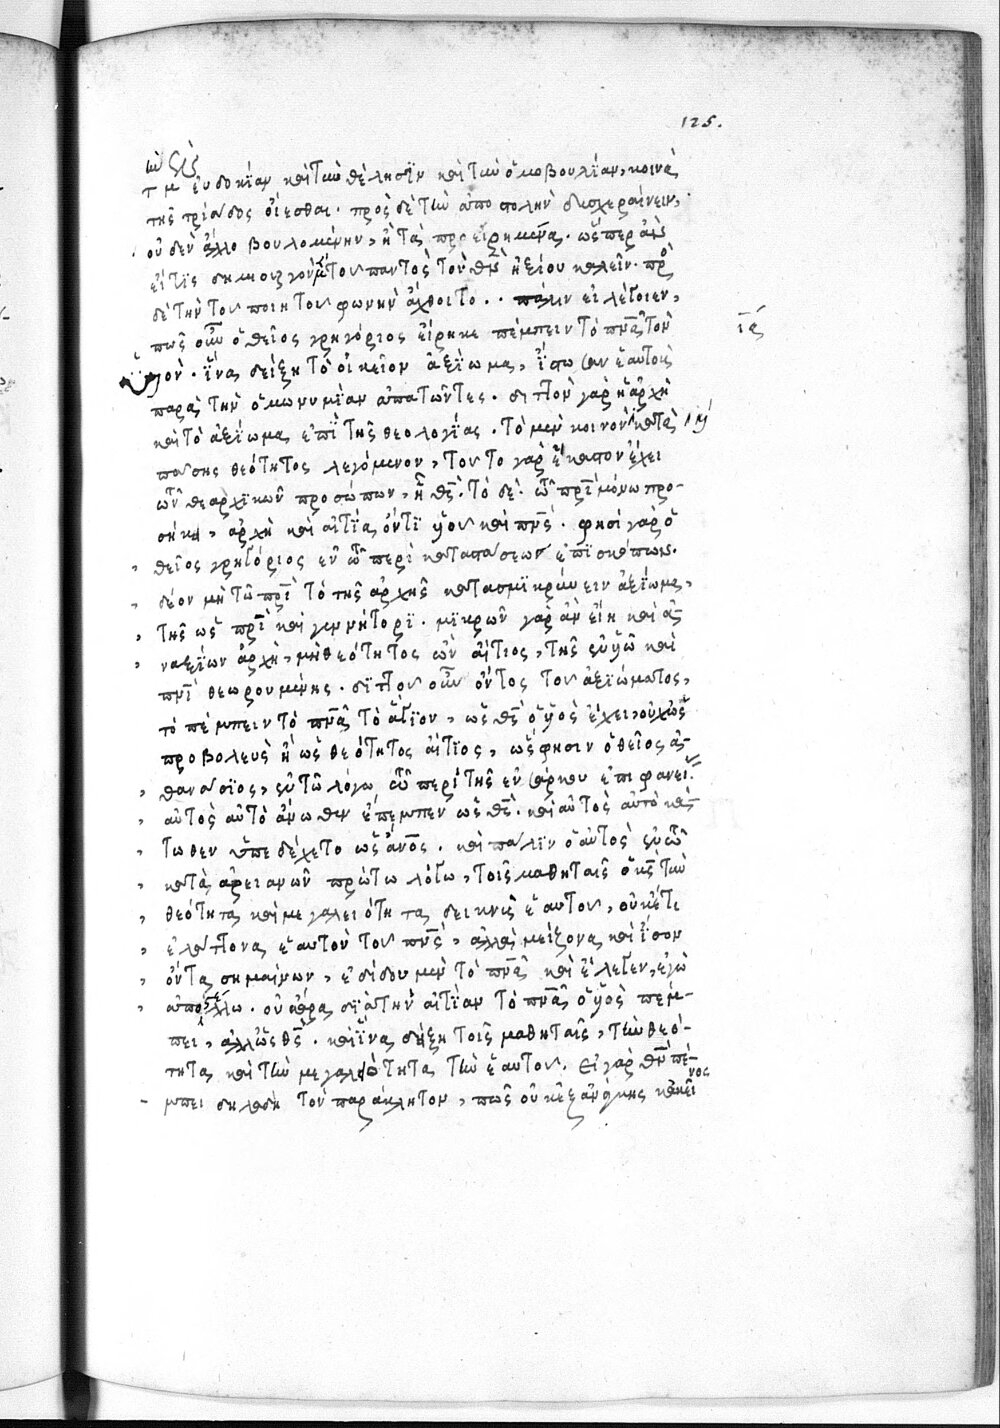 125.
τὴν εὐδοκίαν καὶ τὴν θέλησϊν καὶ τὴν ὁμοβουλίαν, κοινὰ
τῆς τριάδος οἴεσθαι. πρὸς δὲ τὴν ἀποστολὴν δυσχεραίνειν,
οὐδὲν ἄλλο βουλομένην, ἢ τὰ προειρημένα. ὥσπερ ἂν
εἴ τϊς δημιουργὸν τοῦ παντὸς τὸν θν̅ ἠξίου καλεῖν. πρὸ
δὲ τὴν τοῦ ποιητοῦ φωνὴν ἄχθοιτο. πάλιν εἰ λέγοιεν,
πῶς οὖν ὁ θεῖος γρηγόριος εἴρηκε πέμπειν τὸ πν̅α τὸν
ϊα
υἱόν. ἵνα δείξη τὸ οἰκεῖον ἀξϊωμα, ἴστωσαν ἑαυτοὺς
παρὰ τὴν ὁμωνυμίαν ἀπατῶντες. διττὸν γὰρ ἡ ἀρχὴ
καὶ τὸ ἀξίωμα ἐπὶ τῆς θεολογίας. τὸ μὲν κοινὸν κατὰ
πάσης θεότητος λεγόμενον, τοῦτο γὰρ ἕκαστον ἔχει
τῶν θεαρχικῶν προσώπων, ἧ θς̅. τὸ δὲ. τῶ πρϊ̅ μόνω προ-
σήκει, ἀρχὴ καὶ αἰτία ὄντϊ υἱοῦ καὶ πν̅ς. φησὶ γὰρ ὁ
θεῖος γρηγόριος ἐν τῶ περὶ καταστάσεων ἐπϊσκόπων.
δέον μὴ τῶ πρϊ̅ τὸ τῆς ἀρχῆς κατασμϊκρύνειν ἀξίωμα,
τῆς ὡς πρϊ̅ καὶ γεννήτορϊ. μϊκρῶν γὰρ ἂν εἴη καὶ ἀ-
ναξίων ἀρχή, μὴ θεότητος ὢν αἴτιος, τῆς ἐν υἱῶ καὶ
πνϊ̅ θεωρουμένης. διττοῦ οὖν ὄντος τοῦ ἀξιώματος,
τὸ πέμπειν τὸ πν̅α τὸ ἅγϊον, ὡς θς̅ ὁ υἱὸς ἔχει, οὐχ ὡς
προβολεὺς ἢ ὡς θεότητος αἴτϊος, ὥς φησιν ὁ θεῖος ἀ-
θανάσϊος, ἐν τῶ λόγω τῶ περὶ τῆς ἐν σάρκου ἐπιφανεί.
αὐτὸς αὐτὸ ἄνωθεν ἔπεμπεν ὡς θς̅. καὶ αὐτὸς αὐτὸ κά-
τωθεν ὑπεδέχετο ὡς ἄνος̅. καὶ πάλϊν ὁ αὐτὸς ἐν τῶ
κατὰ ἀρειανῶν πρώτω λόγω, τοῖς μαθηταῖς ὁ κς̅ τὴν
θεότητα καὶ μεγαλειότητα δεικνὺς ἑαυτοῦ, οὐκέτι
ἐλάττονα ἑαυτοῦ τοῦ πν̅ς, ἀλλὰ μείζονα καὶ ἴσον
ὄντα σημαίνων, ἐδίδου μὲν τὸ πν̅α καὶ ἔλεγεν, ἐγὼ
ἀποστέλλω. οὐκ ἄρα διὰ τὴν αἰτίαν τὸ πν̅α ὁ υἱὸς πέμ-
πει, ἀλλ᾽ ὡς θς̅. καὶ ἵνα δείξη τοῖς μαθηταῖς, τὴν θεό-
τητα καὶ τὴν μεγαλειότητα τὴν ἑαυτοῦ. εἰ γὰρ θν̅ πέ-
μπει δηλαδὴ τὸν παράκλητον, πῶς οὐκ ἐξ ἀνάγκης κἀκεῖνος